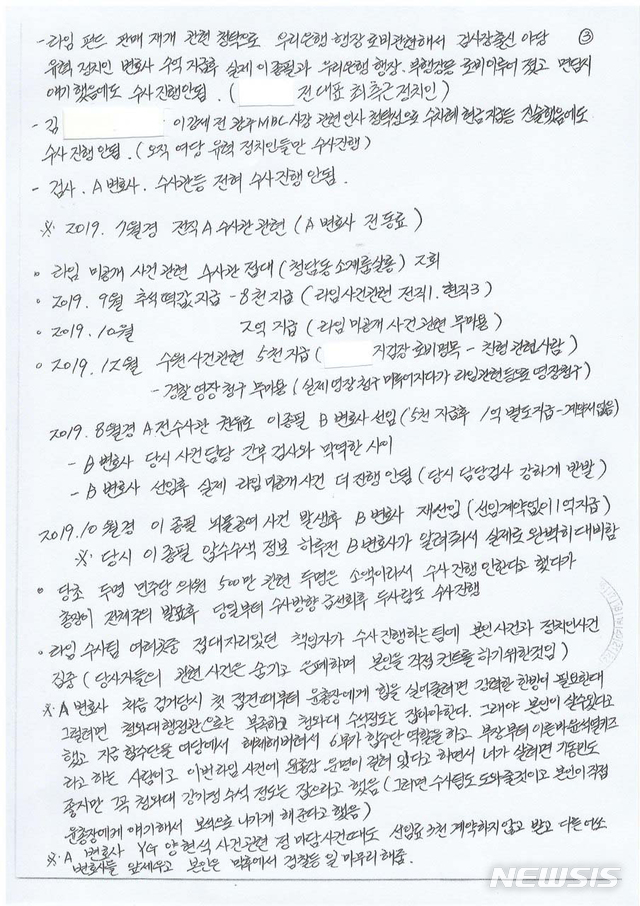 ③
- 라임 펀드 판매 재개 관련 청탁으로 우리은행 행장 로비관련해서 검사장출신 야당
유력 정치인 변호사 수억 지급후 실제 이종필과 우리은행 행장.부행장등 로비이루어 졌고 면담시
얘기 했음에도 수사 진행안됨. ( 전 대표 최측근 정치인 )
- 김 이강제 전 광주MBC사장 관련 인사 청탁성으로 수차례 현금 지급등 진술했음에도
수사 진행 안됨. ( 오직 여당 유력 정치인들만 수사진행 )
- 검사. A변호사. 수사관등 전혀 수사진행 안됨.
※. 2019. 7월경 전직A수사관 관련 ( A변호사 전동료 )
∘ 라임 미공개 사건 관련 수사관 접대 ( 청담동소재룸살롱 ) 2회
∘ 2019. 9월 추석 떡값지급 - 8천 지급 ( 라임사건관련 전직1. 현직3 )
∘ 2019. 10월 2억 지급 ( 라임 미공개 사건 관련 무마용 )
∘ 2019. 12월 수원사건관련 5천 지급 ( 지검장 로비명목 - 친형 관련사람 )
- 경찰 영장 청구 무마용 ( 실제 영장 청구 미루어지다가 라임관련등으로 영장청구 )
2019. 8월경 A전수사관 이종필 B변호사 선임 ( 5천 지급후 1억 별도지급 - 계약서없음 )
- B변호사 당시 사건 담당 간부 검사와 막역한 사이
- B변호사 선임후 실제 라임 미공개사건 더 진행 안됨 ( 당시 담당검사 강하게 반발 )
2019. 10월경 이종필 뇌물공여 사건 발생후 B변호사 재선임 ( 선임계약없이 1억지급 )
※. 당시 이종필 압수수색 정보 하루전 B변호사가 알려줘서 실제로 완벽히 대비함
∘ 당초 두명 민주당 의원 500만 관련 두명은 소액이라서 수사진행 안한다고 했다가
총장이 전체주의 발표후 당일부터 수사방향 급선회후 두사람도 수사진행
∘ 라임 수사팀 여러차례 접대자리있던 책임자가 수사 진행하는 팀에 본인사건과 정치인사건
집중 ( 당사자들의 관련 사건은 숨기고 은폐하며 본인을 직접 컨트롤 하기위한것임 )
※. A변호사 처음 검거당시 첫 접견때부터 윤총장에게 힘을 실어줄려면 강력한 한방이 필요한데
그럴려면 청와대행정관으로는 부족하고 청와대 수석정도는 잡아야한다. 그래야 본인이 살수있다고
했고 지금 합수단을 여당에서 해체해버려서 6부가 합수단 역할을 하고 부장부터 이른바윤석열키즈
라고 하는 사람이고 이번 라임 사건에 윤총장 운명이 걸려 있다고 하면서 너가 살려면 기동민도
좋지만 꼭 청와대 강기정 수석 정도는 잡으라고 했음 ( 그러면 수사팀도 도와줄것이고 본인이 직접
윤총장에게 얘기해서 보석으로 나가게 해 준다고 했음 )
※. A변호사 YG 양현석 사건관련 정마담사건때도 선임료 3천 계약하지않고 받고 다른 여소
변호사를 앞세우고 본인은 막후에서 검찰등 일 마무리해줌.
NEWSIS